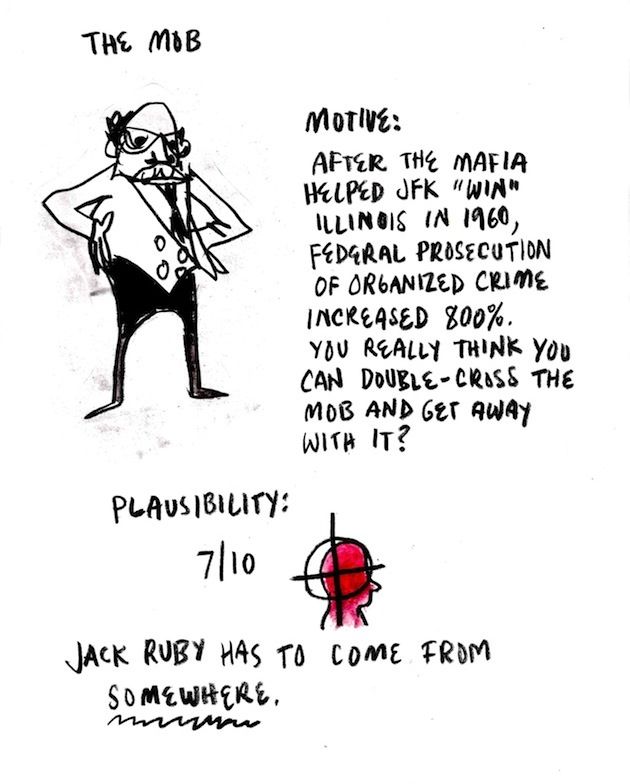 THE MOB
MOTIVE:
AFTER THE MAFIA
HELPED JFK "WIN"
ILLINOIS IN 1960,
FEDERAL PROSECUTION
OF ORGANIZED CRIME
INCREASED 800%.
YOU REALLY THINK YOU
CAN DOUBLE-CROSS THE
MOB AND GET AWAY
WITH IT?
PLAUSIBILITY:
7/10
JACK RUBY HAS TO COME FROM
SOMEWHERE.